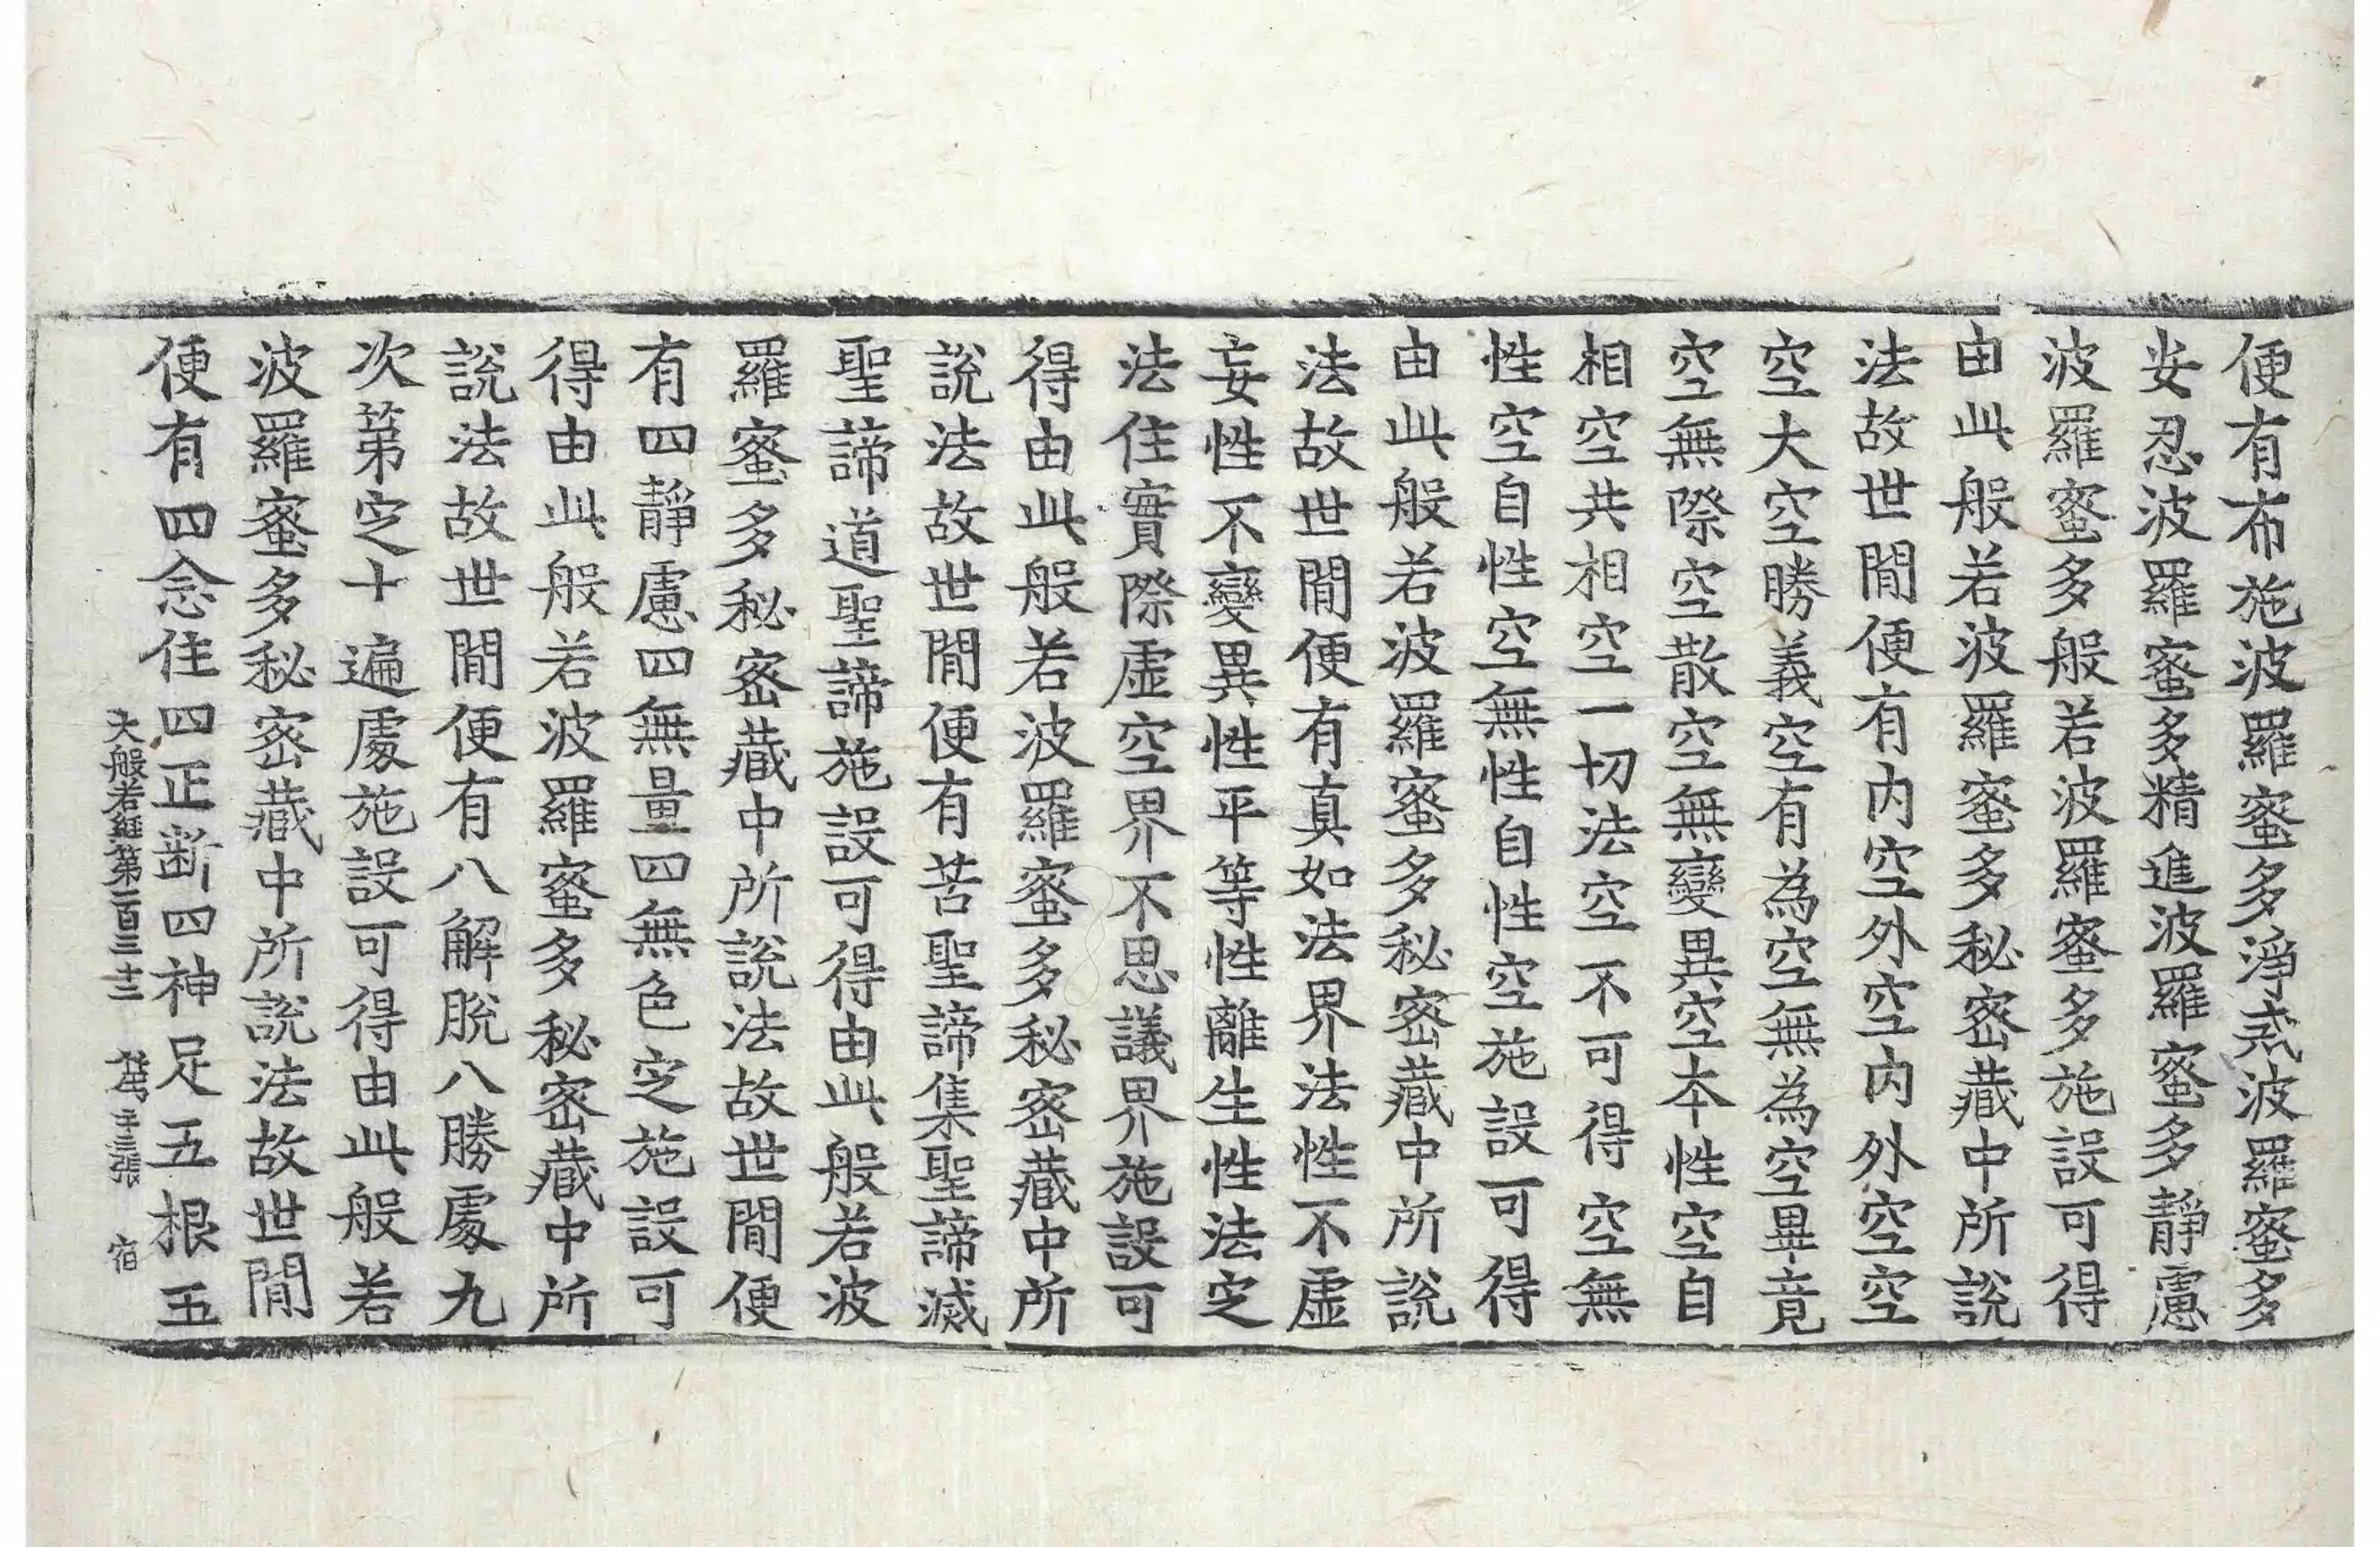 便有布施波羅蜜多淨戒波羅蜜多
安忍波羅蜜多精進波羅蜜多靜慮
波羅蜜多般若波羅蜜多施設可得
由此般若波羅蜜多秘密藏中所說
法故世間便有內空外空內外空空
空大空勝義空有為空無為空畢竟
空無際空散空無變異空本性空自
相空共相空一切法空不可得空無
性空自性空無性自性空施設可得
由此般若波羅蜜多秘密藏中所說
法故世間便有真如法界法性不虛
妄性不變異性平等性離生性法定
法住實際虛空界不思議界施設可
得由此般若波羅蜜多秘密藏中所
說法故世間便有苦聖諦集聖諦滅
聖諦道聖諦施設可得由此般若波
羅蜜多秘密藏中所說法故世間便
有四靜慮四無量四無色定施設可
得由此般若波羅蜜多秘密藏中所
說法故世間便有八解脫八勝處九
次第定十遍處施設可得由此般若
波羅蜜多秘密藏中所說法故世間
便有四念住四正断四神足五根五
大般若經第一百三十二 三張 宿